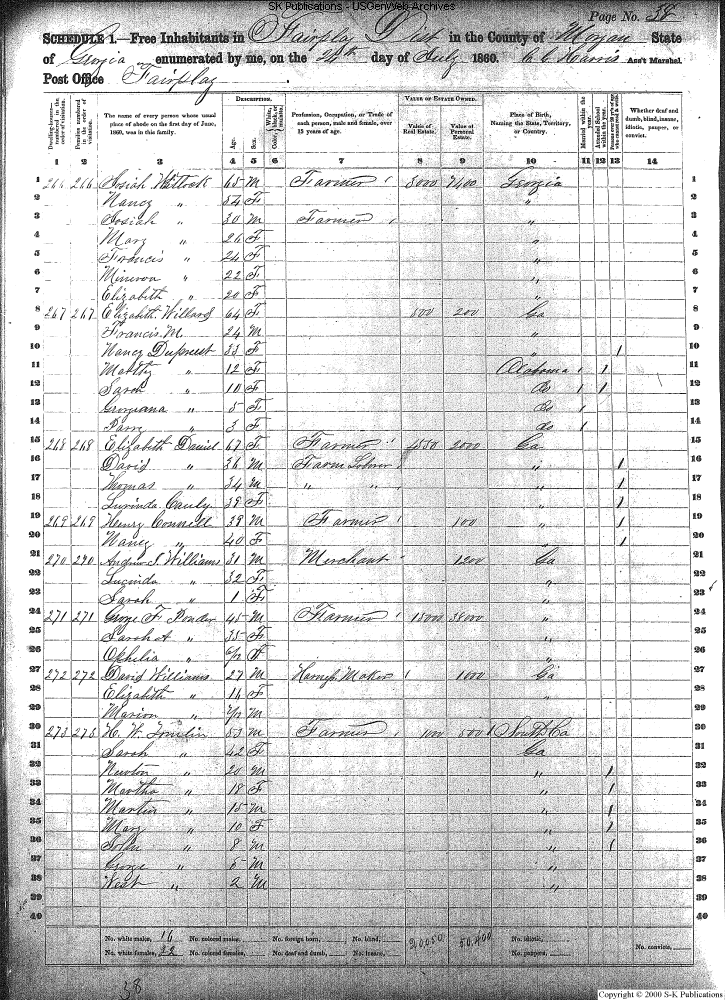 SK Publications - USGenWeb Archives
Page No. 38
SCHEDULE 1.—Free Inhabitants in Fairplay Dist in the County of Morgan State
of Georgia enumerated by me, on the 24th day of July 1860. Harris Ass't Marshal.
Post Office Fairplay
Dwelling-houses—numbered in the order of visitation.
Families numbered in the order of visitation.
The name of every person whose usual place of abode on the first day of June, 1860, was in this family.
DESCRIPTION.
Age.
Sex.
Color, White, black, or mulatto.
Profession, Occupation, or Trade of each person, male and female, over 15 years of age.
VALUE OF ESTATE OWNED.
Value of Real Estate.
Value of Personal Estate.
Place of Birth, Naming the State, Territory, or Country.
Married within the year.
Attended School within the year.
Persons over 20 y'rs of age who cannot read & write.
Whether deaf and dumb, blind, insane, idiotic, pauper, or convict.
1 2 3 4 5 6 7 8 9 10 11 12 13 14
1 266 266 Josiah 65 M Farmer 7400 Georgia 1
2 Nancy " 54 F " 2
3 Josiah " 30 M Farmer " 3
4 Mary " 26 F " 4
5 Francis " 24 F " 5
6 Minerva " 22 F " 6
7 Elizabeth " 20 F " 7
8 267 267 Elizabeth Willard 64 F 200 Ga 8
9 Francis M. 24 M " 9
10 Nancy Dupreest 33 F " / 10
11 " 12 F Alabama / / 11
12 Sarah " 10 F Do / / 12
13 Georgiana " 5 F Do / 13
14 " 3 F do / 14
15 268 268 Elizabeth Daniel 67 F Farmer 2000 Ga 15
16 David " 36 M Farm Laborer " / 16
17 Thomas " 34 M " " " / 17
18 Lucinda Cauly 39 F " / 18
19 269 269 Henry Connell 39 M Farmer 100 " / 19
20 Nancy " 40 F " / 20
21 270 270 Andrew J. Williams 31 M Merchant 1200 Ga 21
22 Lucinda " 32 F " 22
23 Sarah " 1 F " 23
24 271 271 George F. Ponder 45 M Farmer 38000 " 24
25 Sarah A " 35 F " 25
26 Ophelia " 6/12 F " 26
27 272 272 David Williams 27 M Harness Maker 1000 Ga 27
28 Elizabeth " 16 F " 28
29 Marion " M 29
30 273 273 H. W. Tomlin 53 M Farmer 100 500 South Ca 30
31 Sarah " 42 F Ga 31
32 Newton " 20 M " / 32
33 Martha " 18 F " / 33
34 Martin " 15 M " / 34
35 Mary " 10 F " / 35
36 John " 8 M " / 36
37 George " 5 M " 37
38 West " 2 M " 38
39 39
40 40
No. white males, 16 No. colored males, No. foreign born, No. blind, 20,050 50,400 No. idiotic,
No. white females, 22 No. colored females, No. deaf and dumb, No. insane, No. paupers, No. convicts,
38
Copyright © 2000 S-K Publications